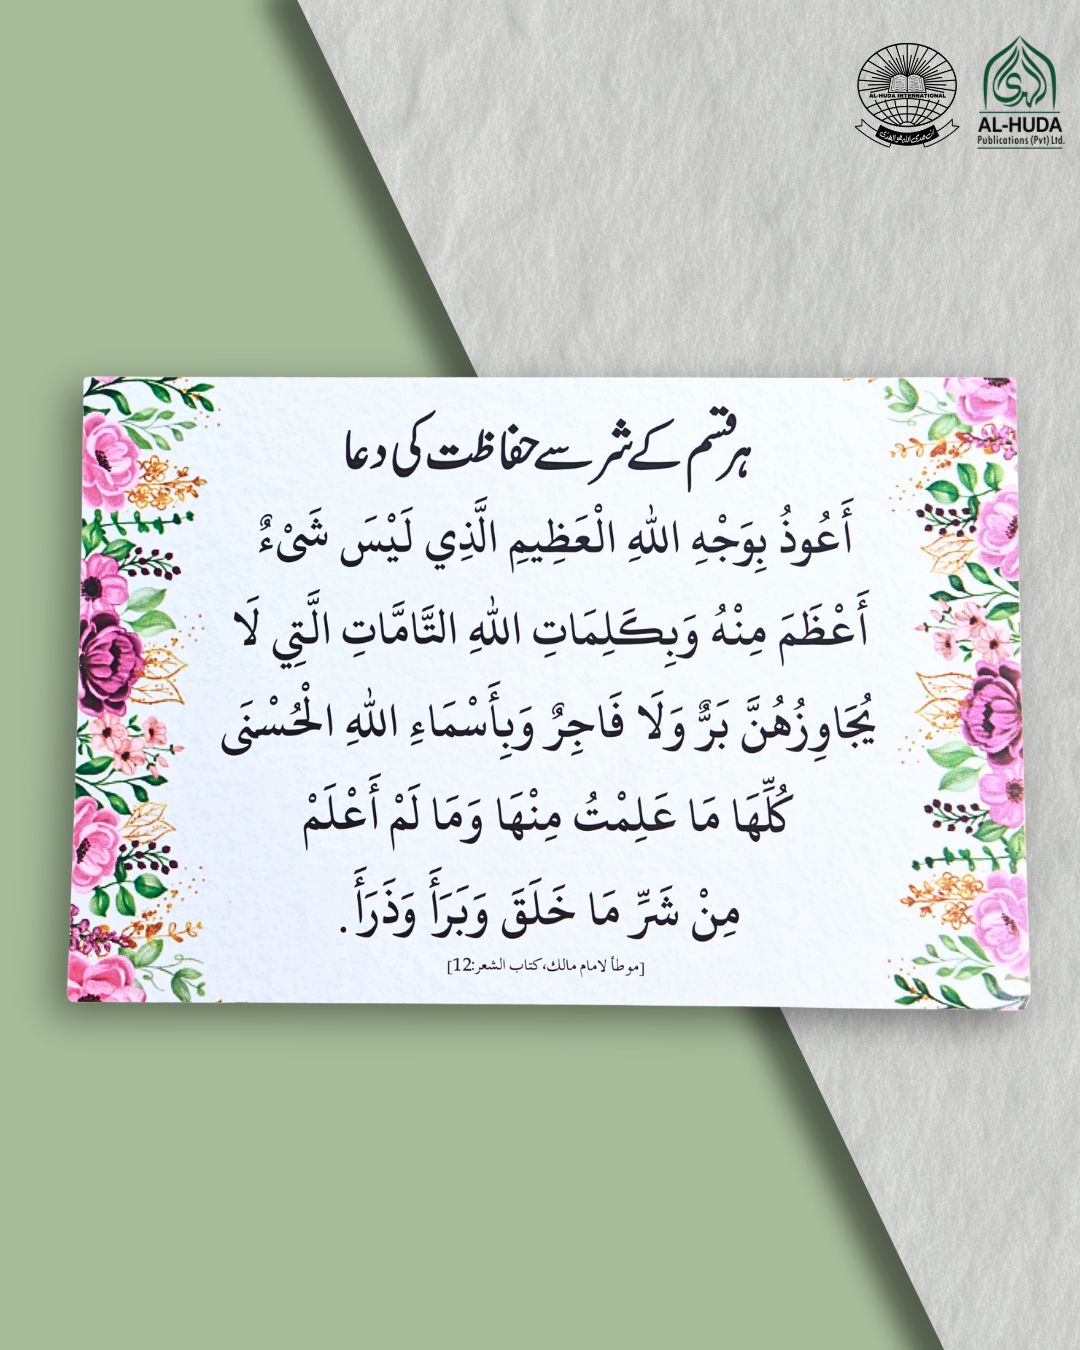 AL-HUDA INTERNATIONAL
AL-HUDA
Publications (Pvt) Ltd.
ہر قسم کے شر سے حفاظت کی دعا
أَعُوذُ بِوَجْهِ اللهِ الْعَظِيمِ الَّذِي لَيْسَ شَىْءٌ
أَعْظَمَ مِنْهُ وَبِكَلِمَاتِ اللهِ التَّامَّاتِ الَّتِي لَا
يُجَاوِزُهُنَّ بَرٌّ وَلَا فَاجِرٌ وَبِأَسْمَاءِ اللهِ الْحُسْنَى
كُلِّهَا مَا عَلِمْتُ مِنْهَا وَمَا لَمْ أَعْلَمْ
مِنْ شَرِّ مَا خَلَقَ وَبَرَأَ وَذَرَأَ.
[موطأ لامام مالك،كتاب الشعر:12]